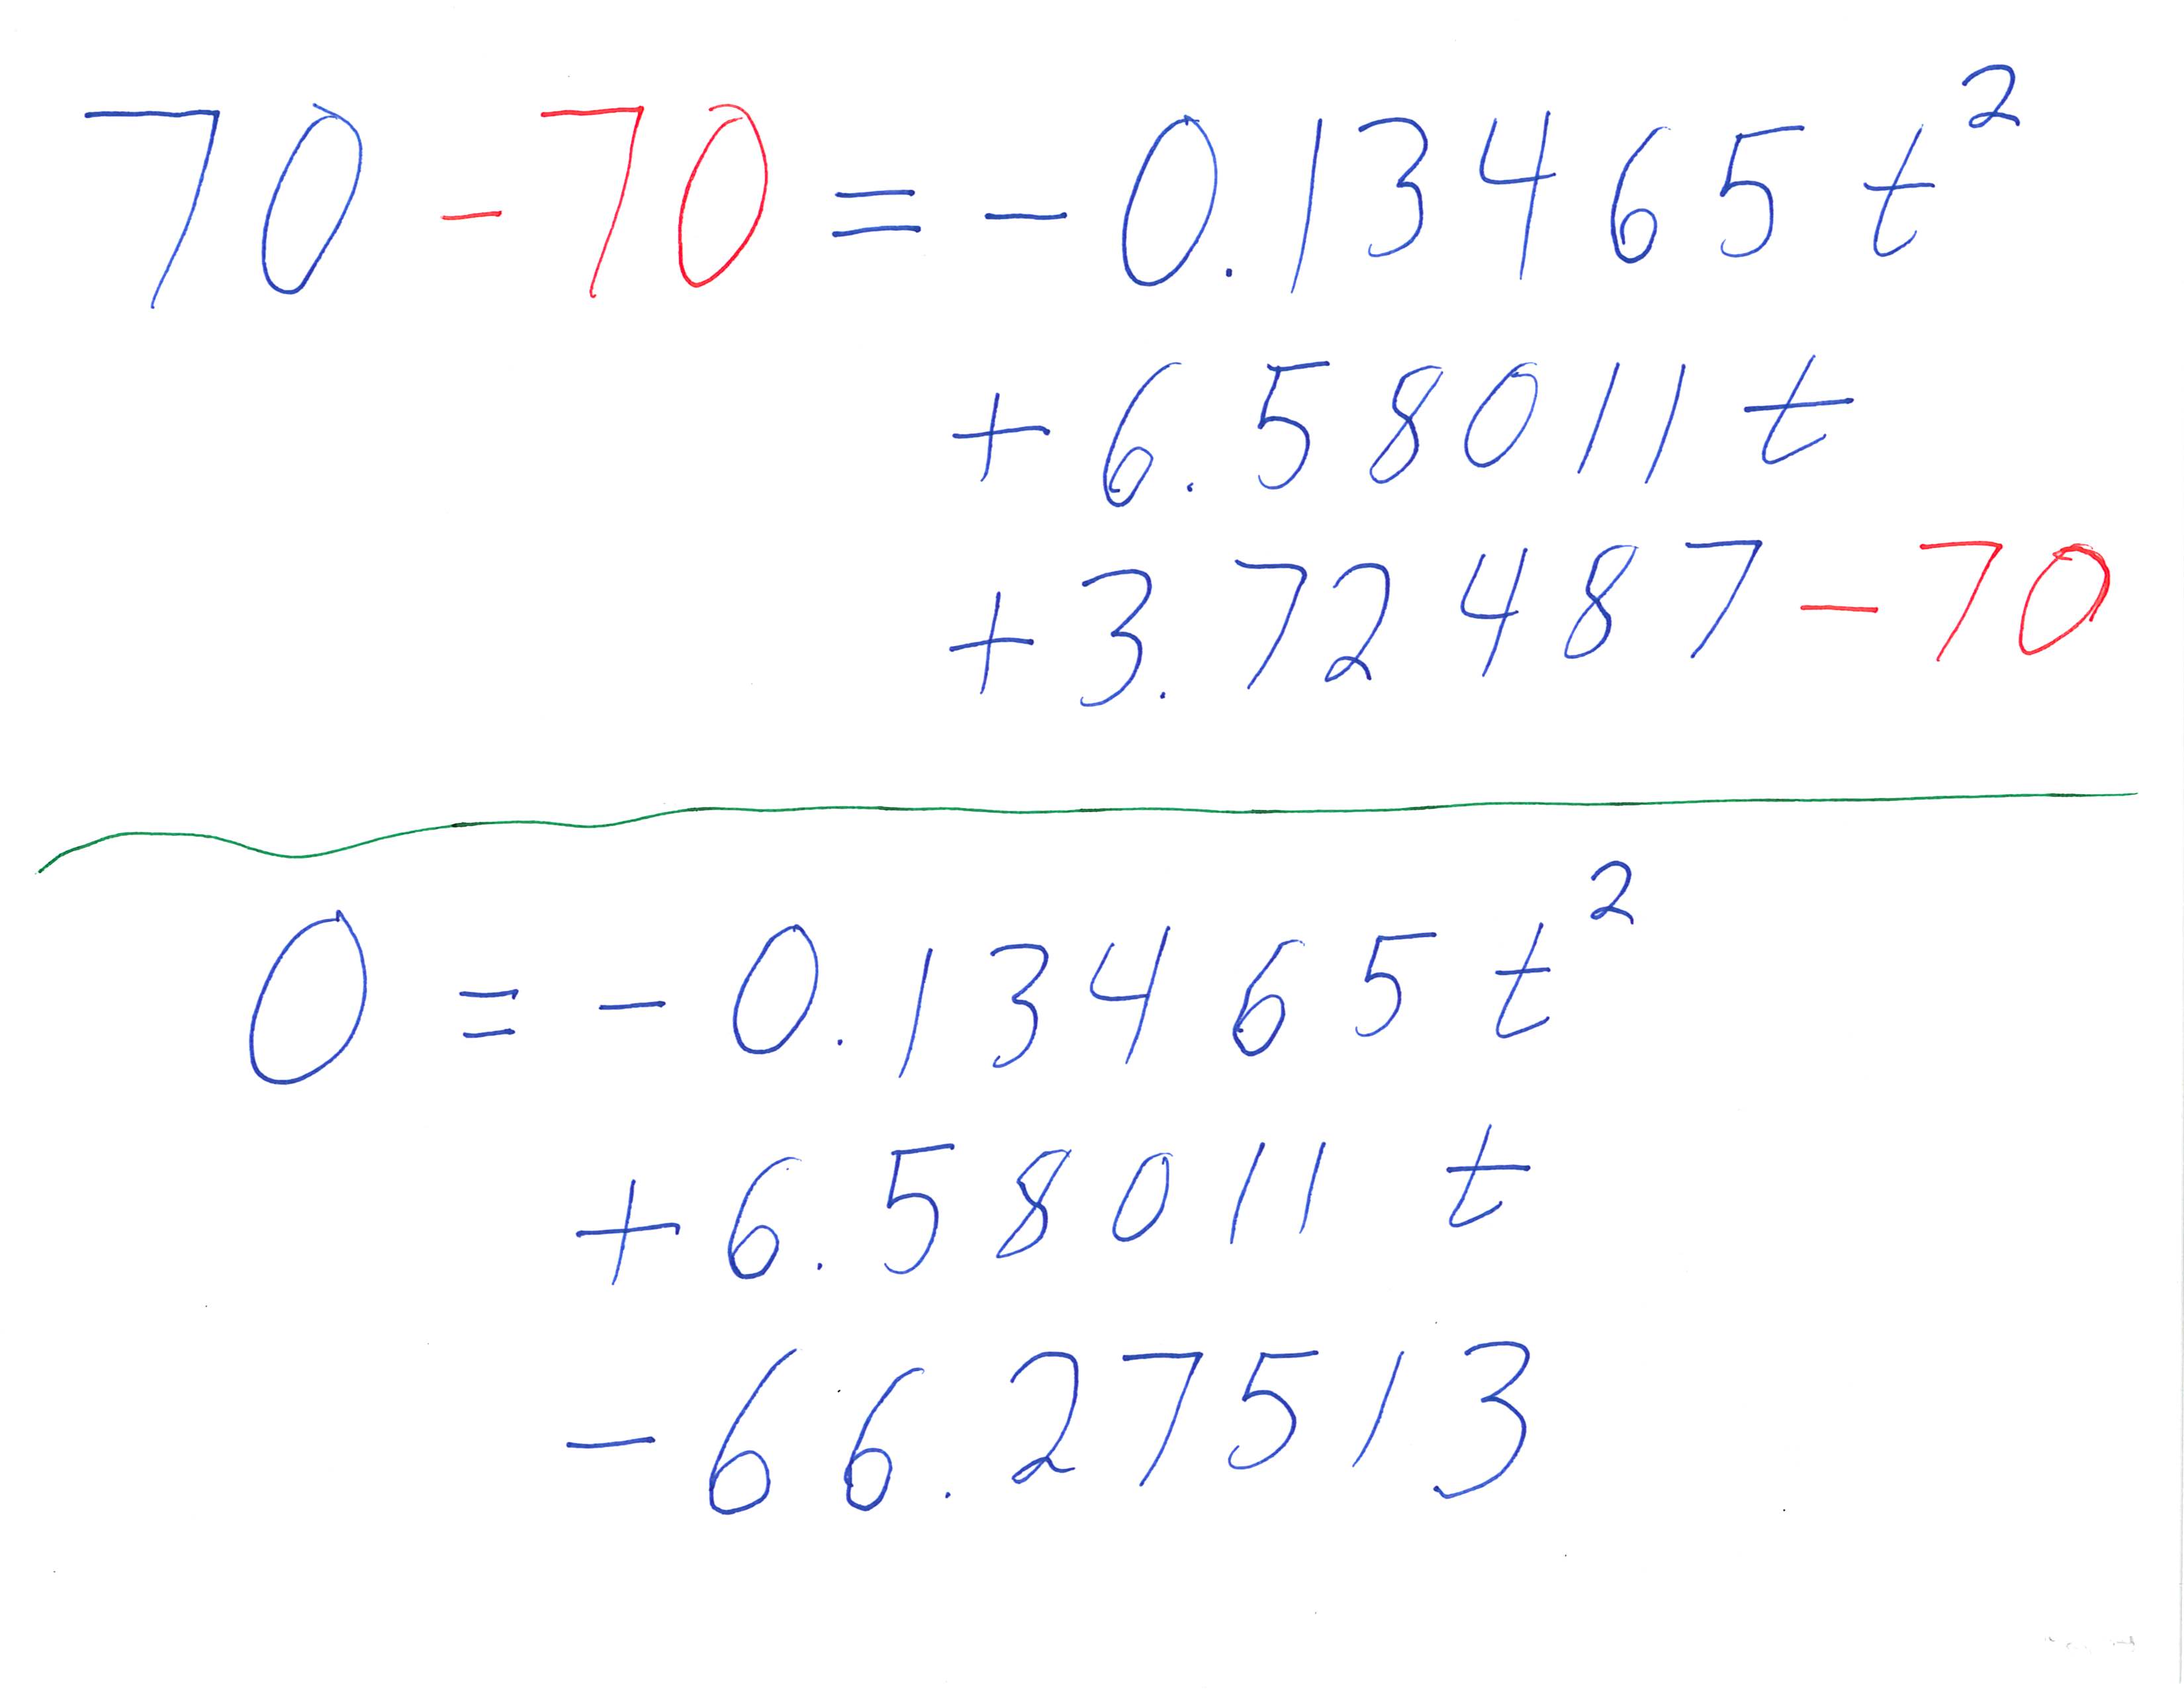 70 - 70 = - 0.13465 t²
+ 6.58011 t
+ 3.72487 - 70
0 = - 0.13465 t²
+ 6.58011 t
- 66.27513